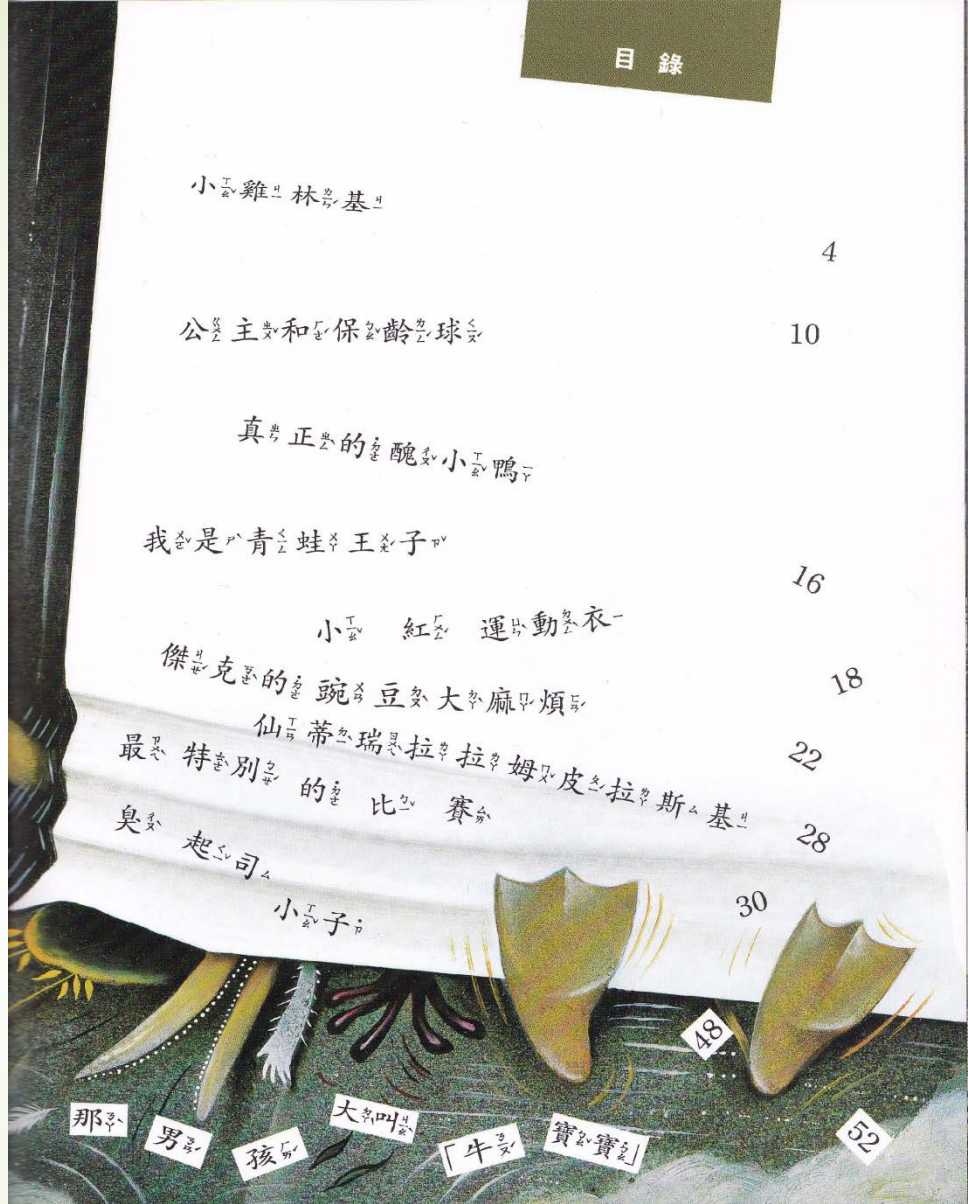 目錄
小雞林基
4
公主和保齡球
10
真正的醜小鴨
我是青蛙王子
16
小 紅 運動衣
18
傑克的豌豆大麻煩
22
仙蒂瑞拉拉姆皮拉斯基
28
最 特別 的 比 賽
30
臭 起司 小子
48
那 男 孩 大叫 「牛 寶寶」
52